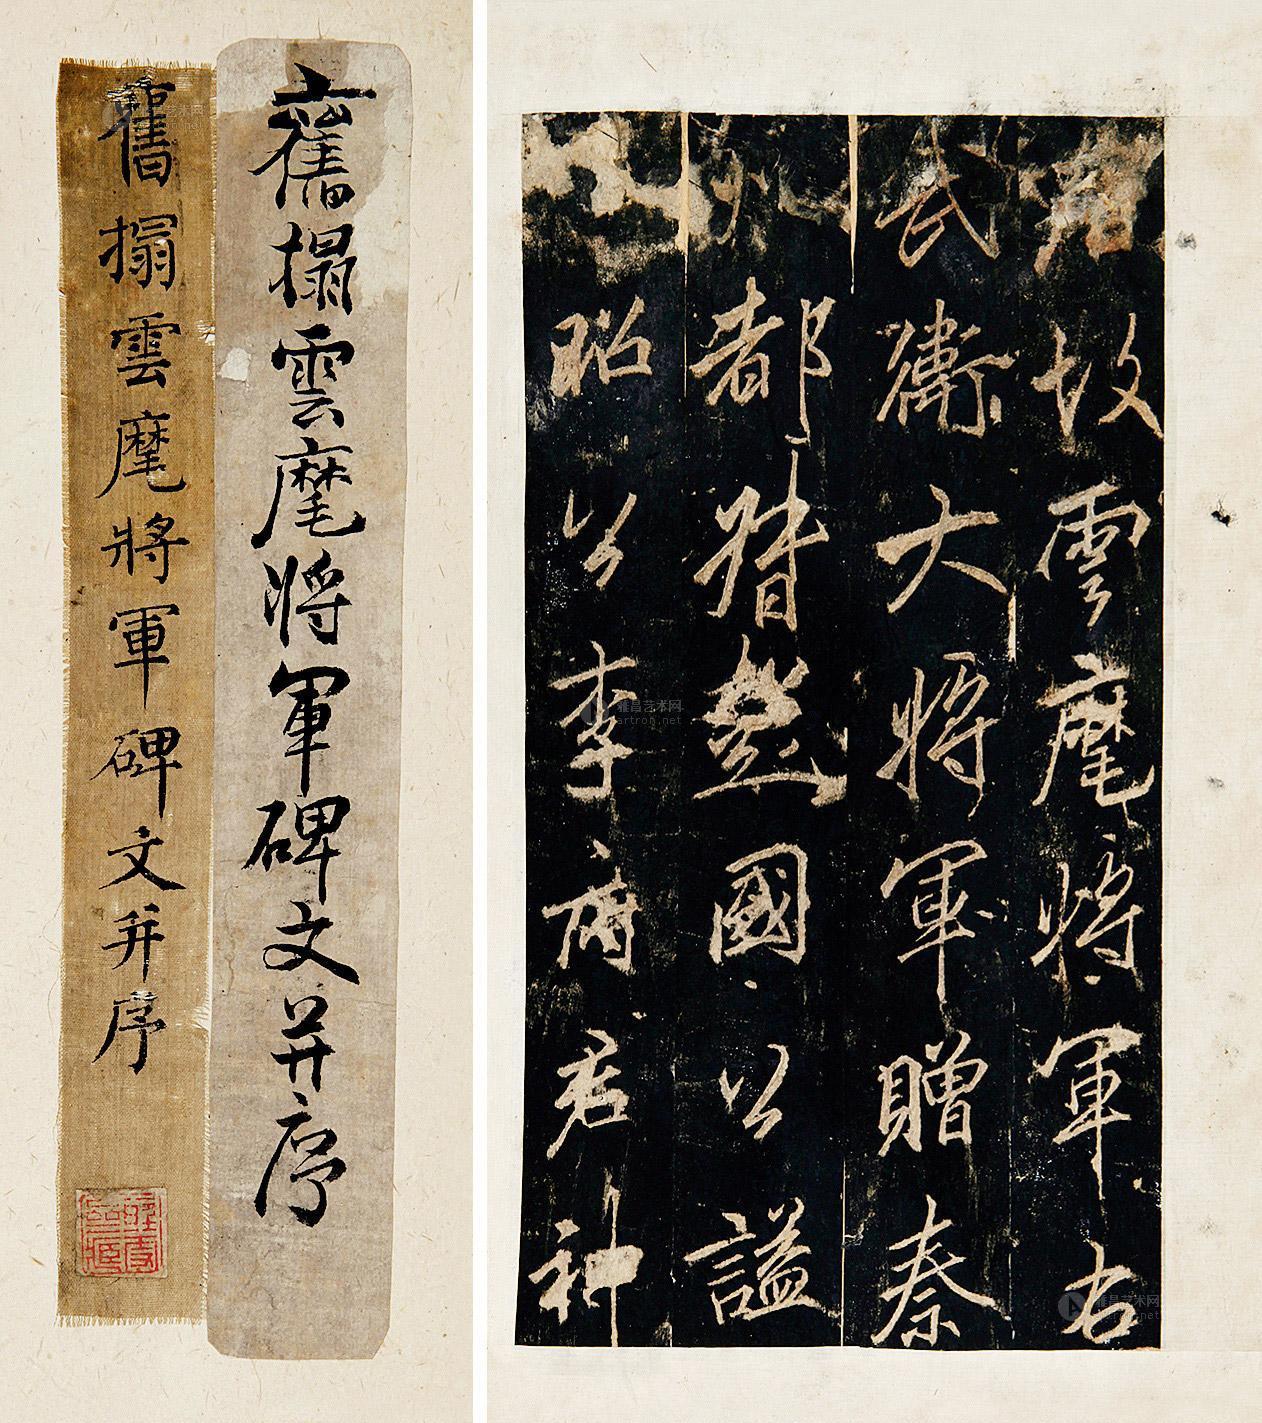 舊搨雲麾將軍碑文并序
舊搨雲麾將軍碑文并序
唐故雲麾將軍右
武衛大將軍贈秦
州都督彭國公謚
昭公李府君神
雅昌艺术网
artron.net